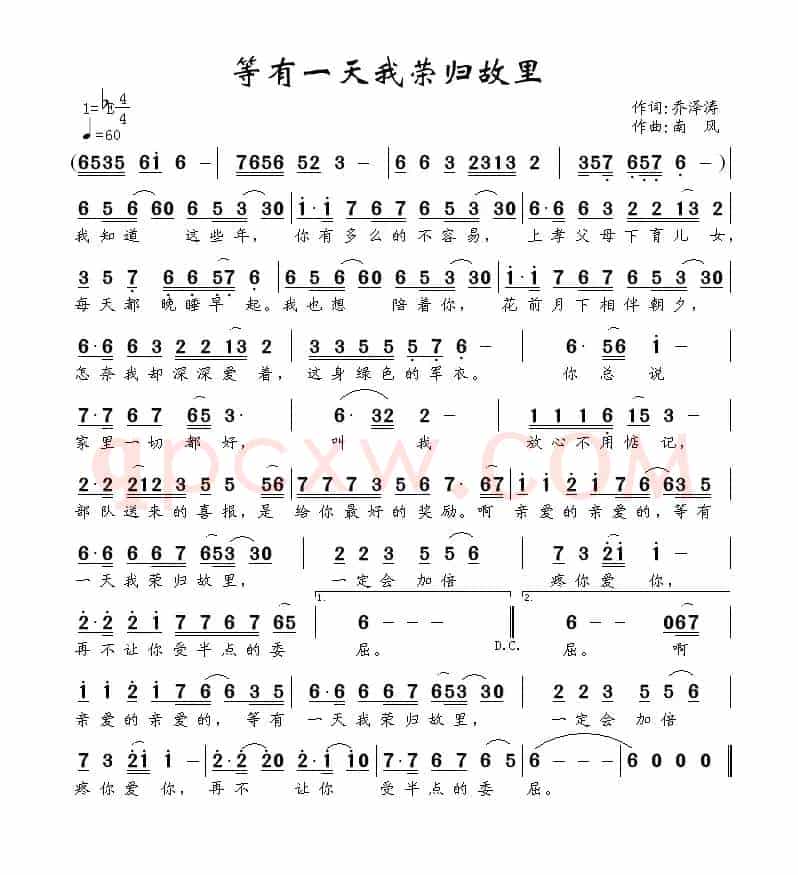 等有一天我荣归故里
1=♭E 4/4
作词:乔泽涛
♩=60
作曲:南 风
(6535 6i 6 - | 7656 52 3 - | 6 6 3 2313 2 | 357 657 6 - )
6 5 6 60 6 5 3 30 | i·i 7 6 7 6 5 3 30 | 6·6 6 3 2 2 13 2 |
我知道 这些年, 你有多么的不容易, 上孝父母下育儿女,
3 5 7 6 6 57 6 | 6 5 6 60 6 5 3 30 | i·i 7 6 7 6 5 3 30 |
每天都 晚睡早 起。我也想 陪着你, 花前月下相伴朝夕,
6·6 6 3 2 2 13 2 | 3 3 5 5 5 7 6 - | 6· 56 i - |
怎奈我却深深爱 着, 这身绿色的军衣。 你总说
7·7 6 7 65 3· | 6· 32 2 - | 1 1 1 6 15 3 |
家里一切都好, 叫 我 放心不用惦记,
qpcxw.COM
2·2 212 3 5 5 56 | 7 7 7 3 5 5 7· 67 | i i 2 i 7 6 6 3 5 |
部队送来的喜报,是 给你最好的奖励。啊 亲爱的亲爱的,等有
6·6 6 6 7 653 30 | 2 2 3 5 5 6 | 7 3 2i i - |
一天我荣归故里, 一定会 加倍 疼你爱 你,
1. 2.
2·2 2 i 7 7 6 7 65 | 6 - - - ‖ 6 - - 067 |
D.C.
再不让你受半点的委 屈。 屈。 啊
i i 2 i 7 6 6 3 5 | 6·6 6 6 7 653 30 | 2 2 3 5 5 6 |
亲爱的亲爱的, 等有 一天我荣归故里, 一定会 加倍
7 3 2i i - | 2·2 20 | 2·i i0 | 7·7 6 7 6 5 | 6 - - - | 6 0 0 0 ‖
疼你爱 你, 再不 让你 受半点的委 屈。